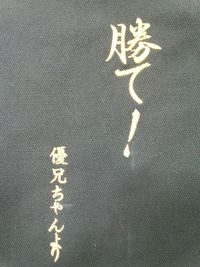 勝て!
優兄ちゃんより